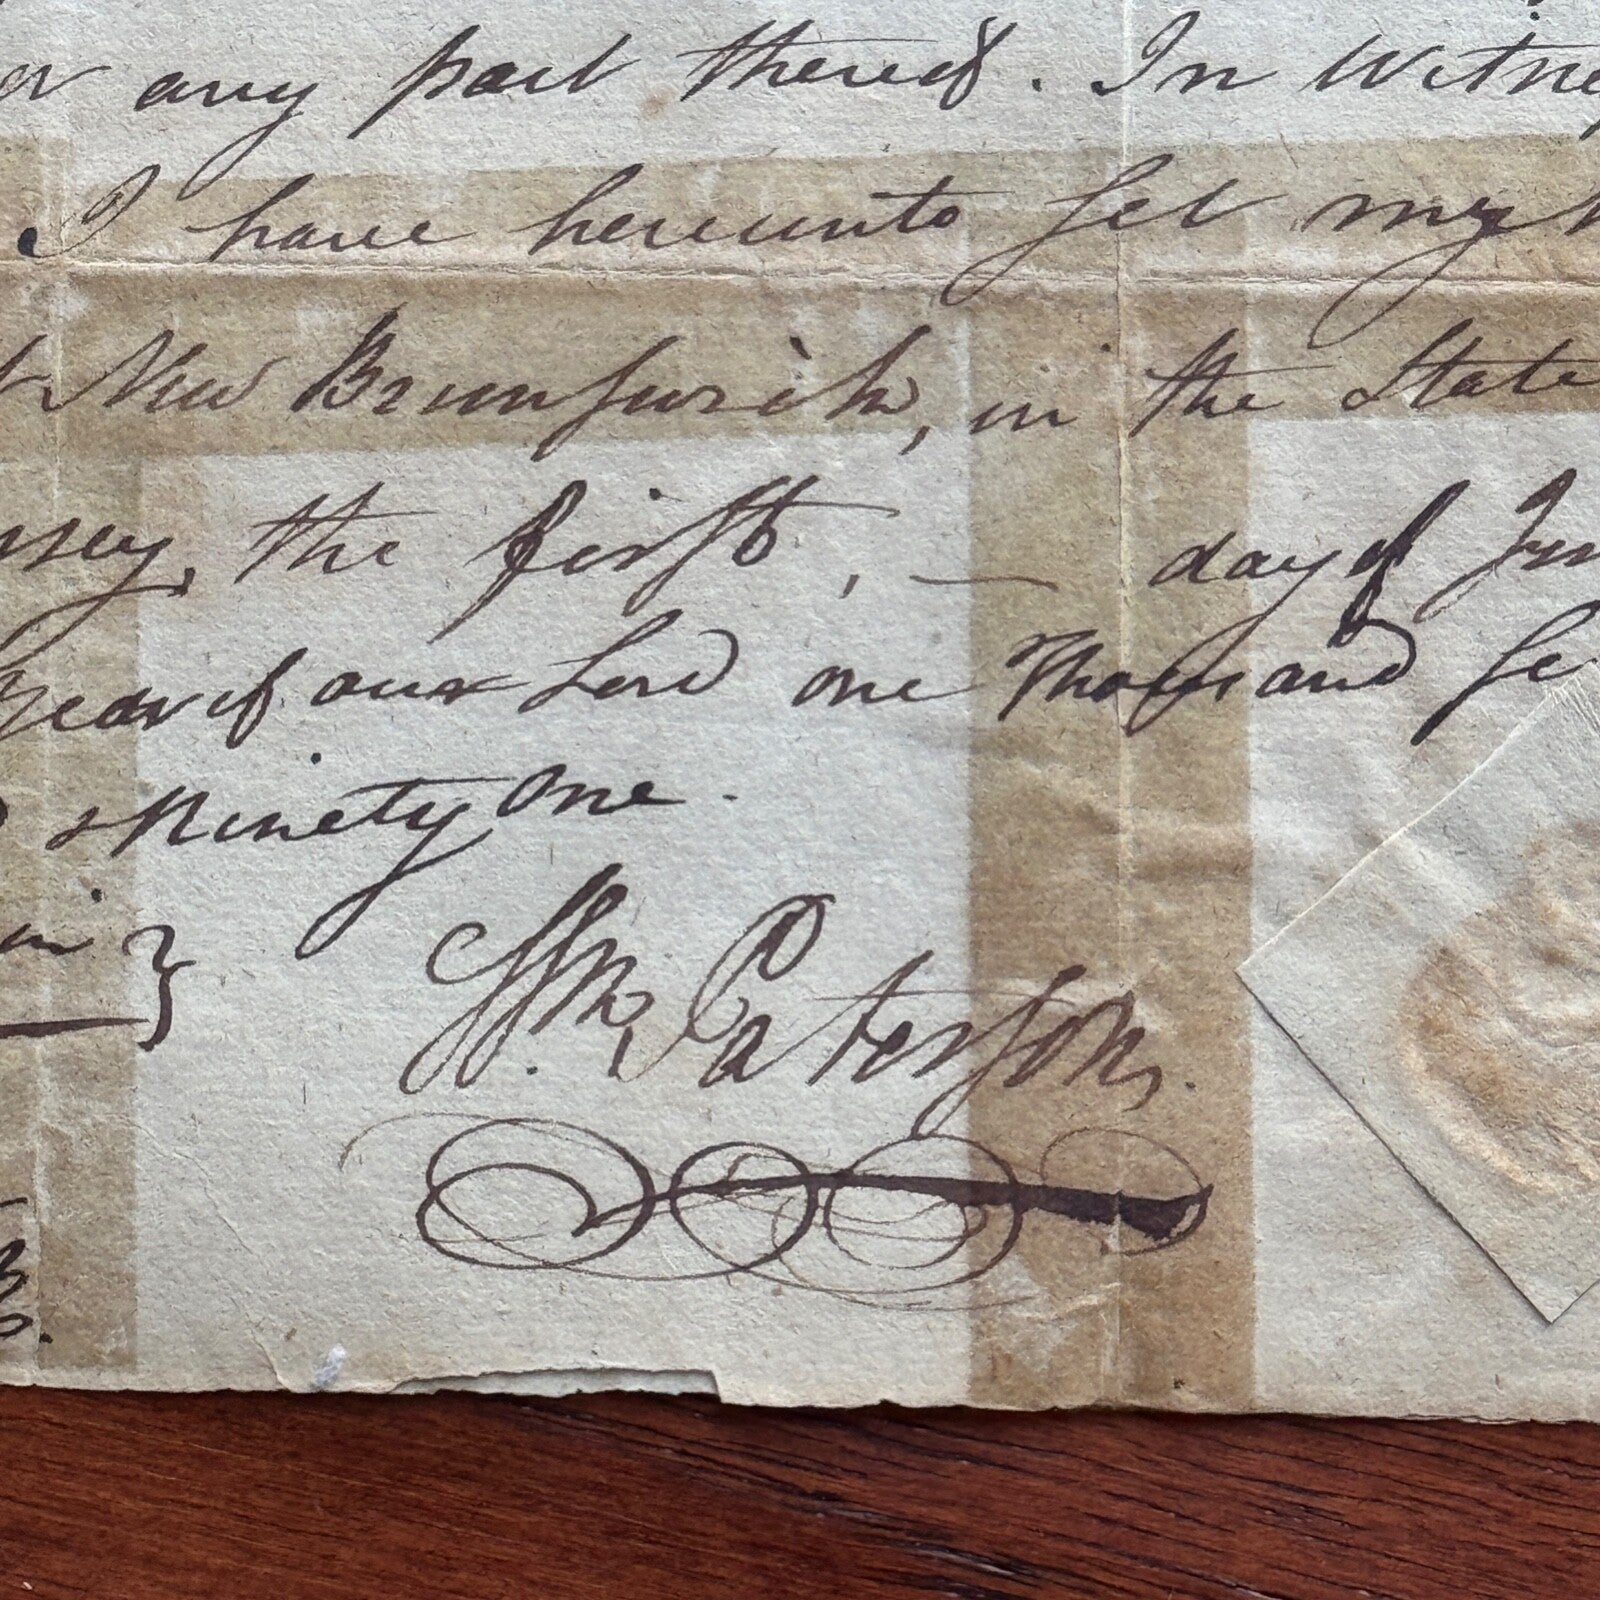 or any part thereof. In Witne
I have hereunto set my h
New Brunswick, in the State
rsey, the first, — day of Jun
year of our Lord one Thousand se
& Ninety one.
Wm. Paterson,